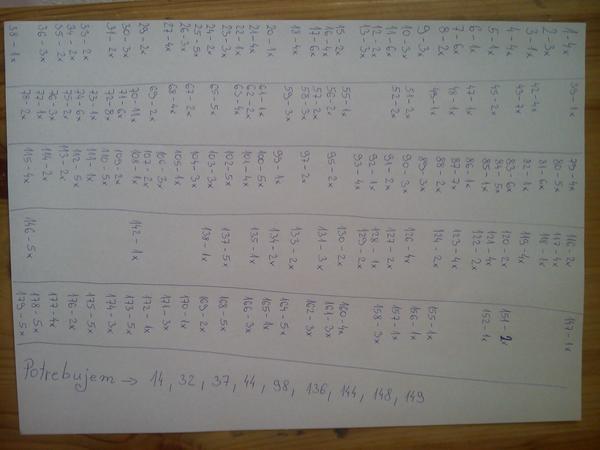 1-4x
2-3x
3-1x
4-4x
5-1x
6-1x
7-6x
8-2x
9-3x
10-3x
11-6x
12-2x
13-2x
15-2x
16-4x
17-6x
18-4x
20-1x
21-4x
22-1x
23-3x
24-2x
25-5x
26-3x
27-4x
29-2x
30-3x
31-2x
33-2x
34-2x
35-2x
36-3x
38-1x
39-1x
42-4x
43-7x
45-2x
47-1x
48-1x
49-1x
51-2x
52-2x
55-1x
56-2x
57-2x
58-3x
59-3x
61-1x
62-2x
63-4x
65-5x
67-2x
68-4x
69-2x
70-11x
71-6x
72-8x
73-1x
74-6x
75-2x
76-3x
77-1x
78-2x
79-4x
80-5x
81-6x
82-1x
83-6x
84-5x
85-1x
86-1x
87-7x
88-2x
89-3x
90-3x
91-2x
92-1x
93-4x
95-2x
97-2x
99-1x
100-5x
101-4x
102-5x
103-3x
104-3x
105-1x
106-3x
107-2x
108-1x
109-2x
110-5x
111-1x
112-5x
113-2x
114-2x
115-4x
116-2x
117-4x
118-1x
119-4x
120-2x
121-4x
122-2x
123-4x
124-2x
126-4x
127-2x
128-1x
129-2x
130-2x
131-3x
133-2x
134-2x
135-1x
137-5x
138-1x
142-1x
146-5x
147-1x
151-2x
152-1x
155-1x
156-1x
157-1x
158-3x
160-4x
161-3x
162-3x
164-5x
165-1x
166-3x
168-5x
169-2x
170-1x
171-3x
172-1x
173-5x
174-3x
175-5x
176-2x
177-4x
178-5x
179-5x
Potrebujem → 14, 32, 37, 44, 98, 136, 144, 148, 149